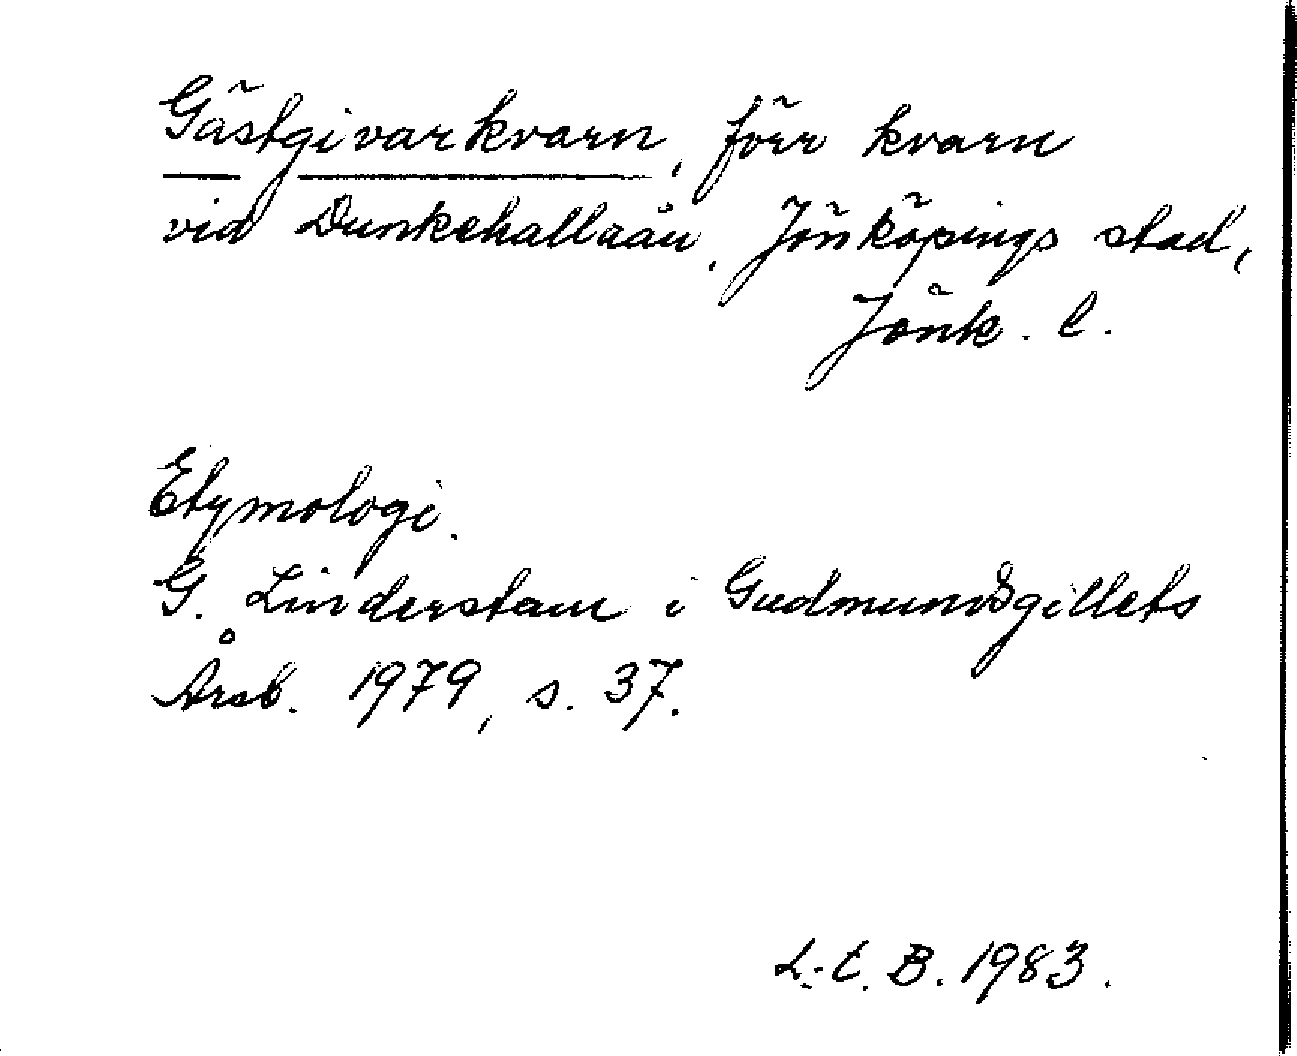 Gästgivarkvarn, förr kvarn
vid Dunkehallaån, Jönköpings stad,
Jönk. l.
Etymologi.
G. Linderstam i Gudmundsgillets
Årsb. 1979, s. 37.
L. C. B. 1983.